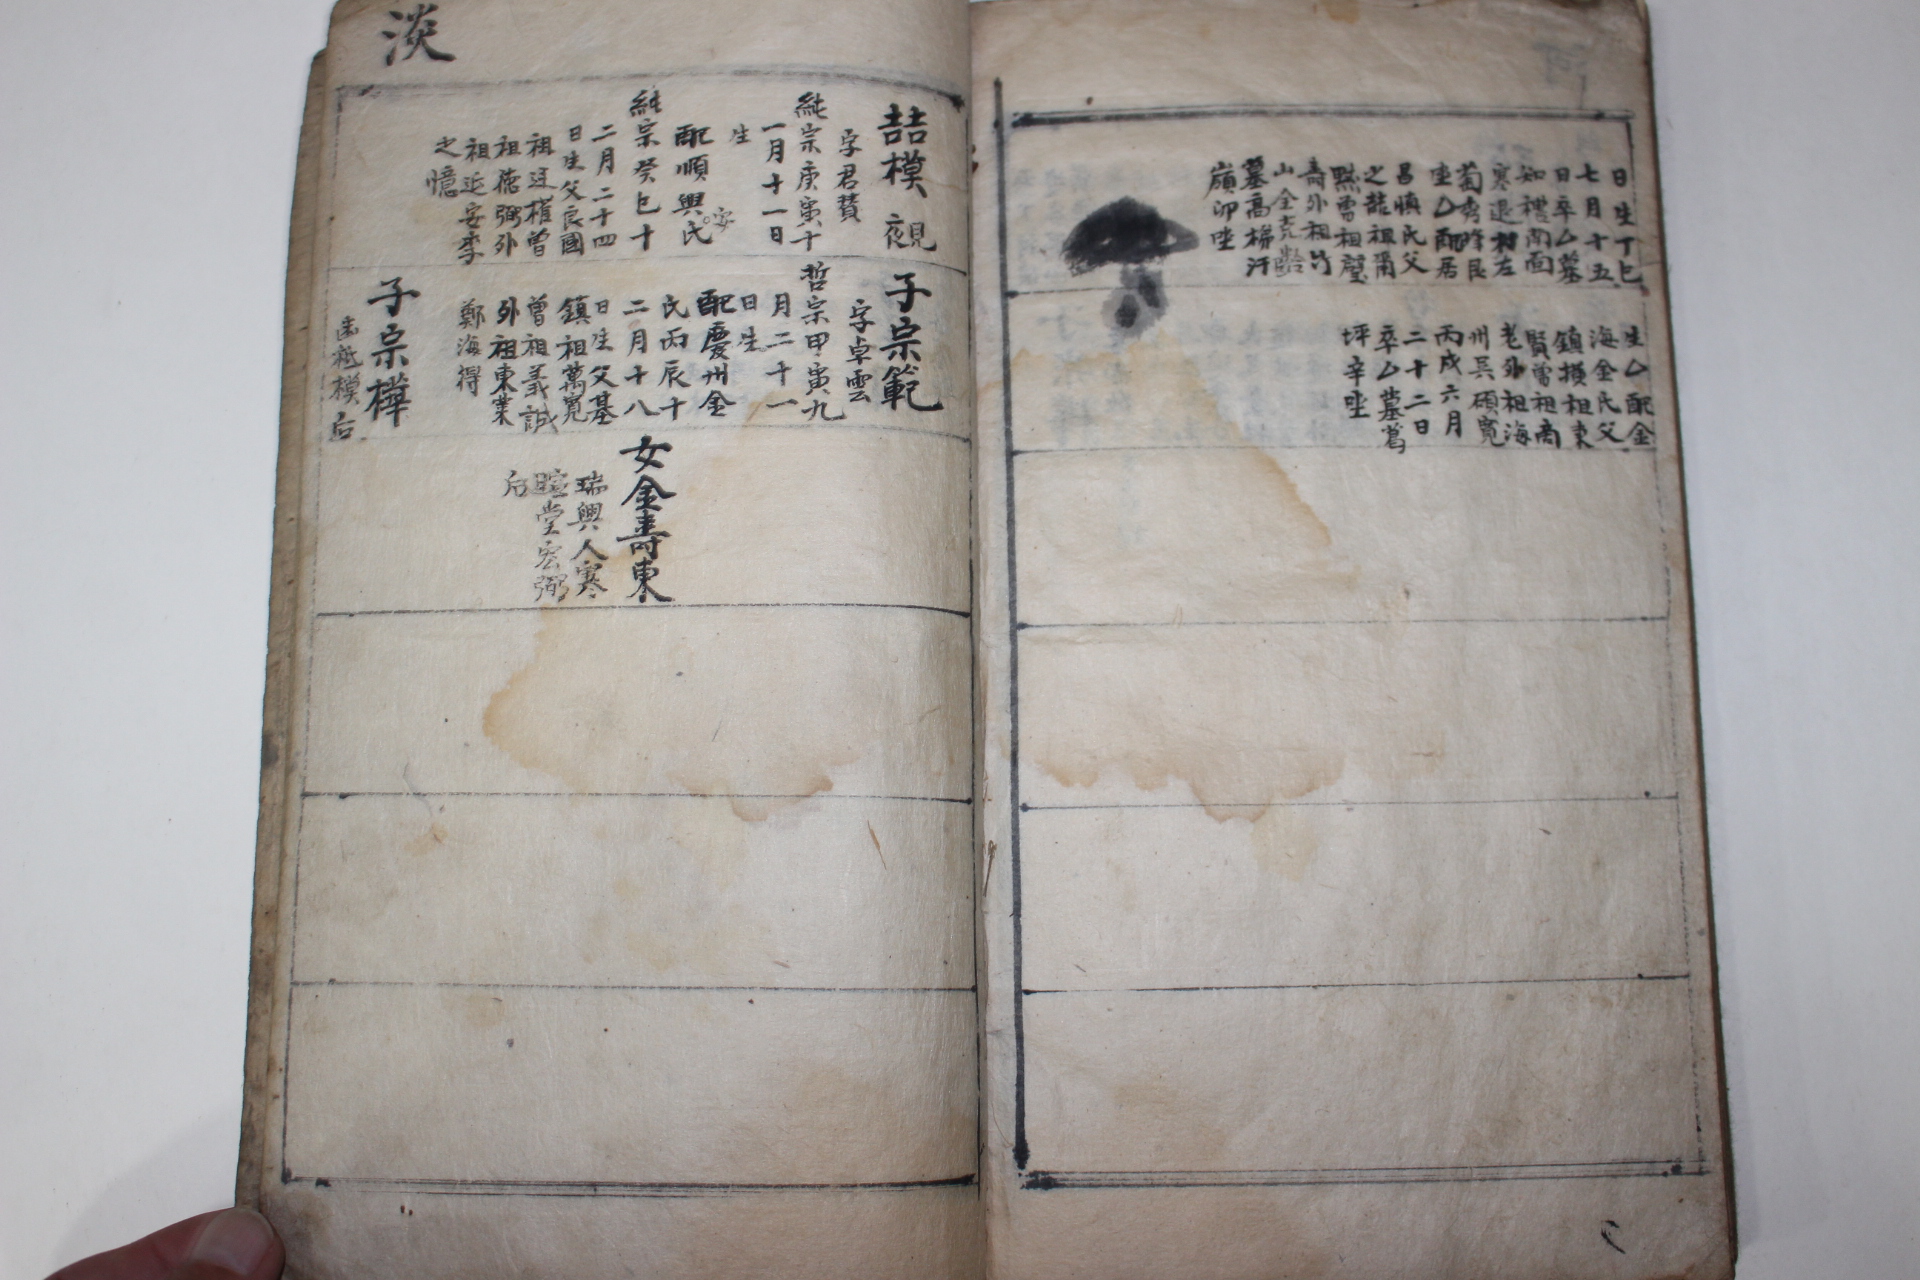 日生丁巳
七月十五
日卒乙墓
知禮南面
寒退村左
蔔秀峰艮
坐乙配居
昌愼氏父
之龍祖爾
黙曾祖璧
壽外祖竹
山全克齡
墓高梯汗
嶺卯坐
生乙配金
海金氏父
鎮損祖東
賢曾祖商
老外祖海
州吳碩寬
丙戌六月
二十二日
卒乙墓蔦
坪辛坐
淡
喆模 覌
字君賛
純宗庚寅十
一月十一日
生
配順興安氏
純宗癸巳十
二月二十四
日生父良國
祖廷權曾
祖德弼外
祖延安李
之憶
子宗範
字卓雲
哲宗甲寅九
月二十一
日生
配慶州金
氏丙辰十
二月十八
日生父基
鎮祖萬寬
曾祖義誠
外祖東萊
鄭海得
子宗樺
出祗模后
女金壽東
瑞興人寒
暄堂宏弼
后